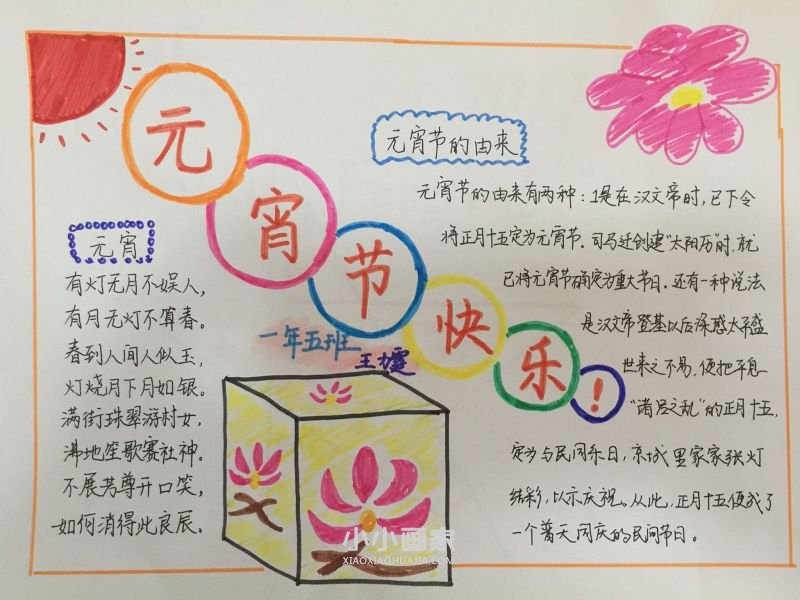 元宵节快乐!
元宵节的由来
元宵节的由来有两种：1是在汉文帝时，已下令
将正月十五定为元宵节。司马迁创建"太阳历"时，就
已将元宵节确定为重大节日。还有一种说法
是汉文帝登基以后深感太平盛
世来之不易，便把平息
"诸吕之乱"的正月十五，
定为与民同乐日，京城里家家张灯
结彩，以示庆祝。从此，正月十五便成了
一个普天同庆的民间节日。
元宵
有灯无月不娱人，
有月无灯不算春。
春到人间人似玉，
灯烧月下月如银。
满街珠翠游村女，
沸地笙歌赛社神。
不展芳尊开口笑，
如何消得此良辰。
一年五班
王
小小画家
XIAOXIAOHUAJIA.COM